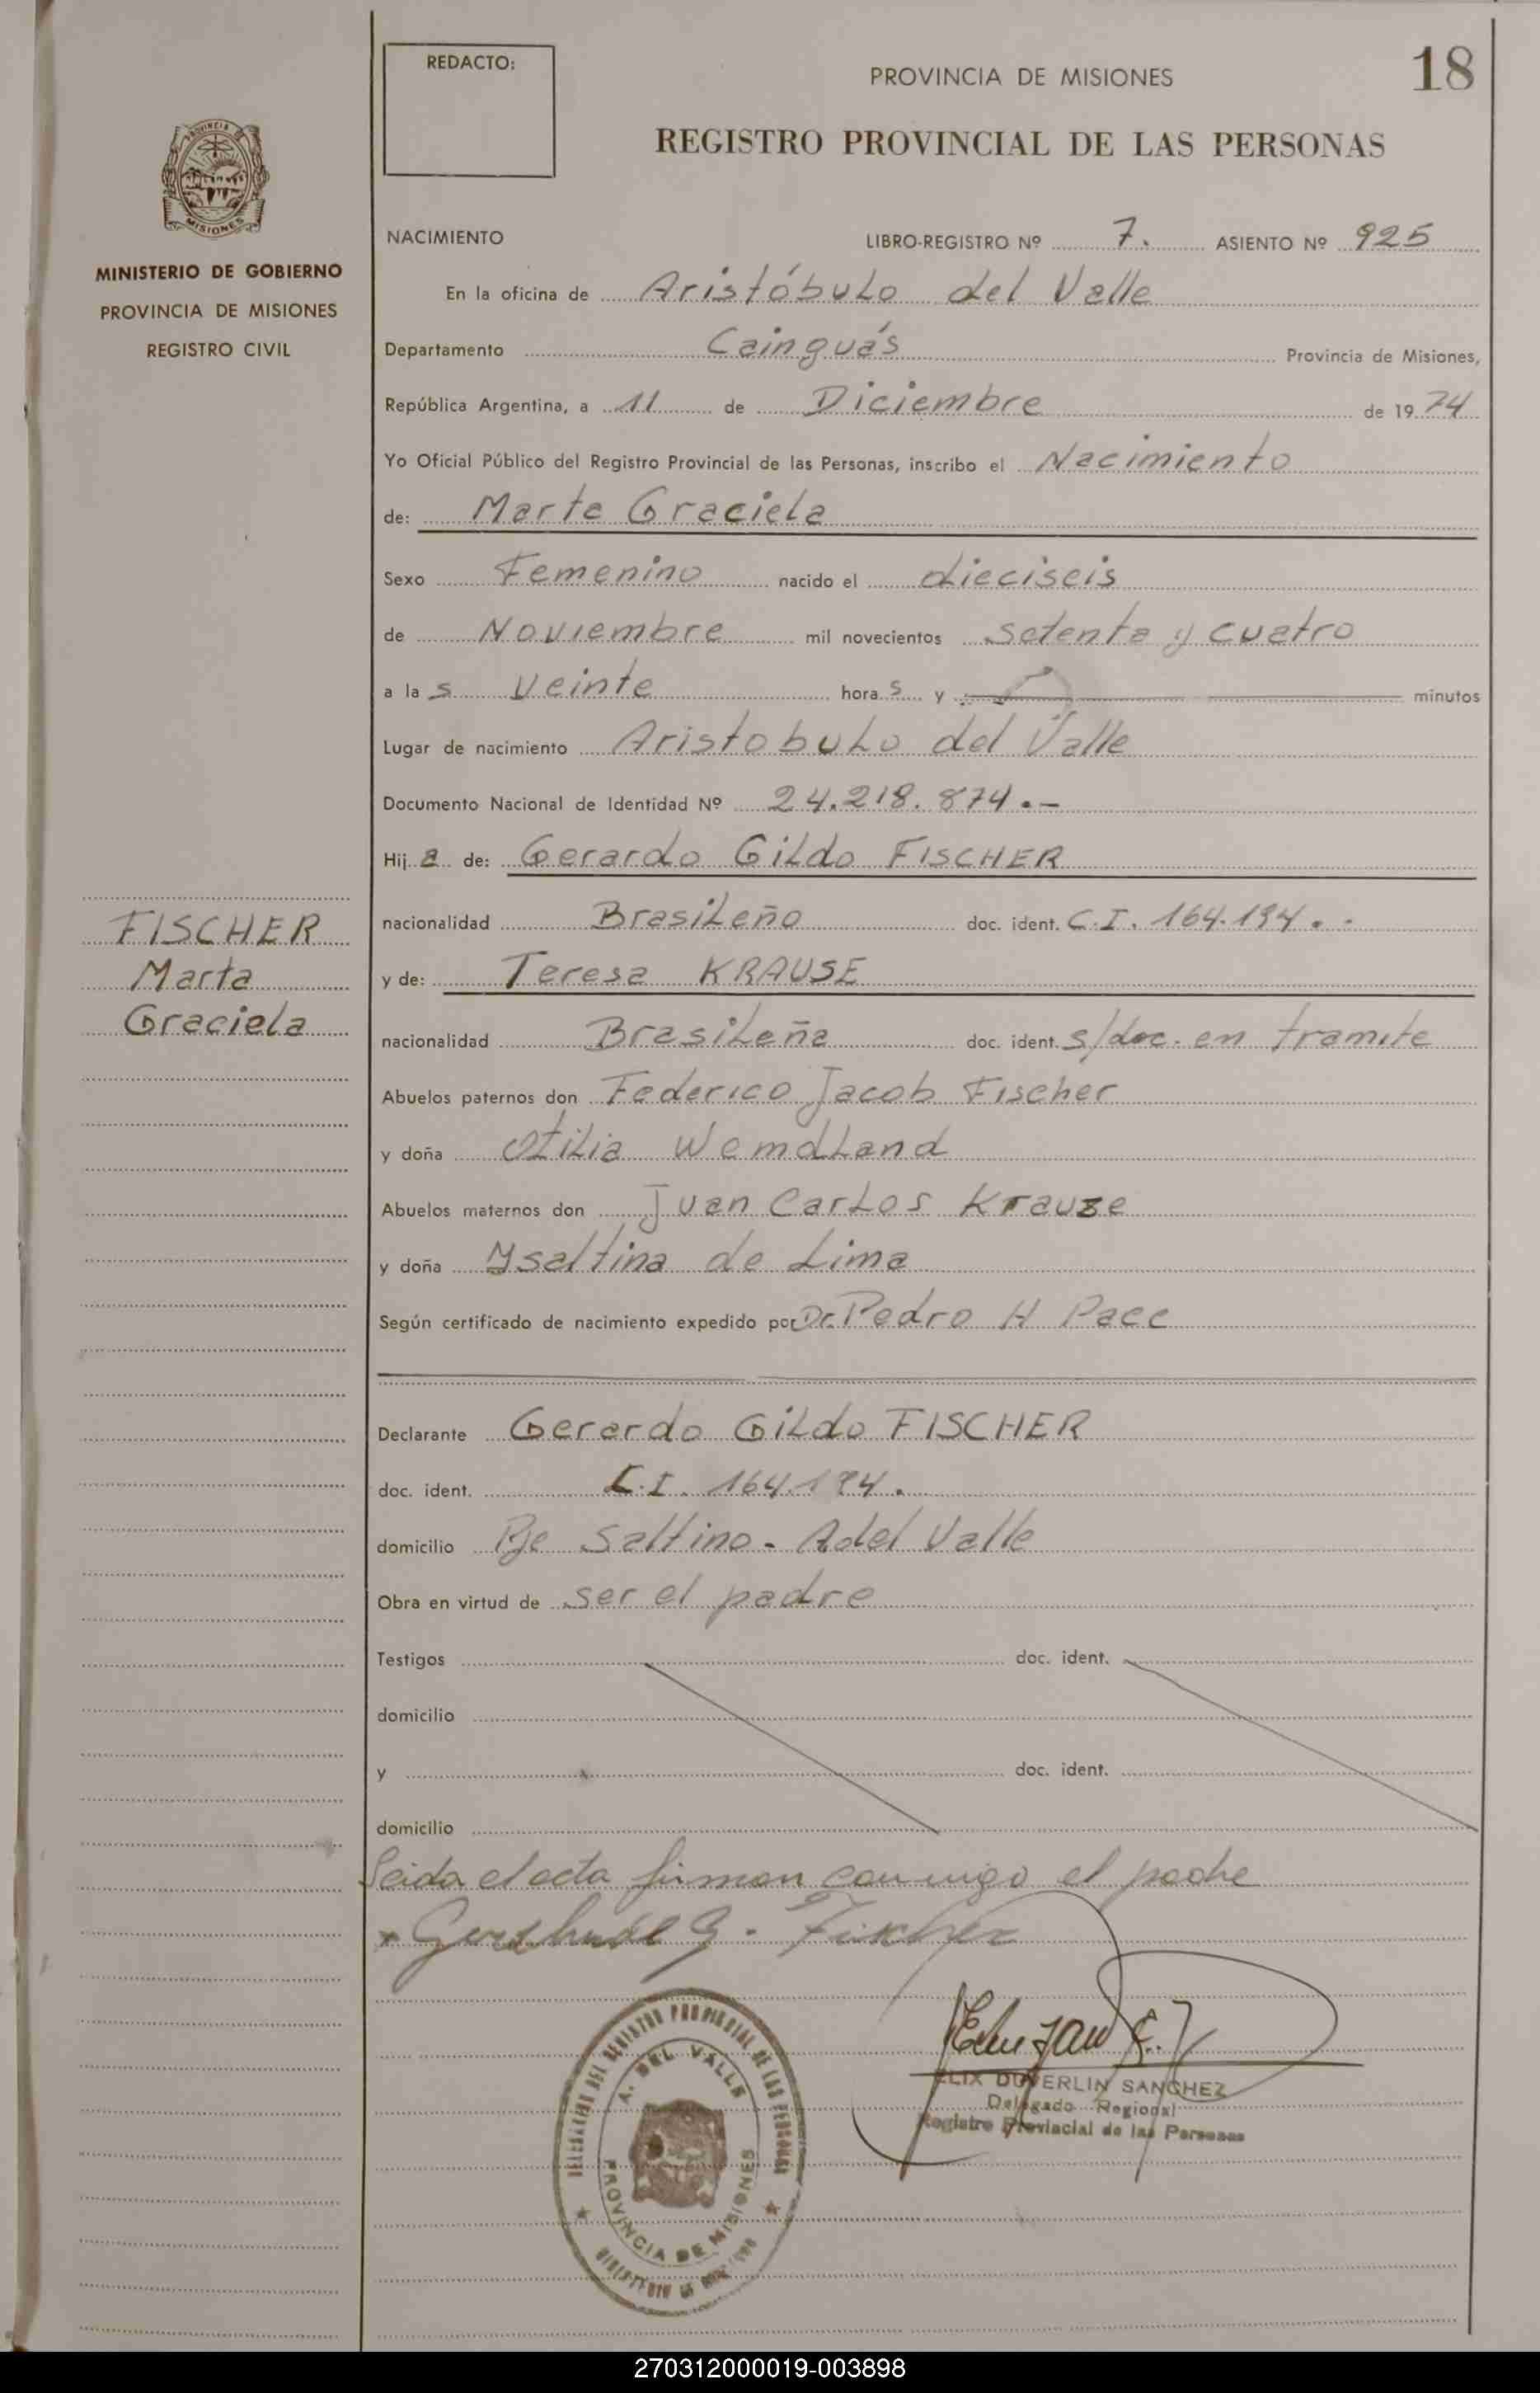 REDACTO:
PROVINCIA DE MISIONES
18
REGISTRO PROVINCIAL DE LAS PERSONAS
PROVINCIA DE
MISIONES
MINISTERIO DE GOBIERNO
PROVINCIA DE MISIONES
REGISTRO CIVIL
NACIMIENTO LIBRO-REGISTRO Nº 7. ASIENTO Nº 925
En la oficina de Aristóbulo del Valle
Departamento Cainguás Provincia de Misiones,
República Argentina, a 11 de Diciembre de 1974
Yo Oficial Público del Registro Provincial de las Personas, inscribo el Nacimiento
de: Marta Graciela
Sexo Femenino nacido el dieciseis
de Noviembre mil novecientos setenta y cuatro
a las veinte horas y minutos
Lugar de nacimiento Aristobulo del Valle
Documento Nacional de Identidad Nº 24.218.874.-
Hija de: Gerardo Gildo FISCHER
nacionalidad Brasileño doc. ident. C.I. 164.194.-
y de: Teresa KRAUSE
nacionalidad Brasileña doc. ident. s/doc. en tramite
FISCHER
Marta
Graciela
Abuelos paternos don Federico Jacob Fischer
y doña Otilia Wemdland
Abuelos maternos don Juan Carlos Krause
y doña Ysaltina de Lima
Según certificado de nacimiento expedido por Dr. Pedro H Pace
Declarante Gerardo Gildo FISCHER
doc. ident. C.I. 164.194.
domicilio Pje Saltino - A del Valle
Obra en virtud de ser el padre
Testigos doc. ident.
domicilio
y doc. ident.
domicilio
Leida el acta firman conmigo el padre
G. Fischer
ELIX DUVERLIN SANCHEZ
Delegado Regional
Registro Provincial de las Personas
DELEGACION DEL REGISTRO PROVINCIAL DE LAS PERSONAS
A. DEL VALLE
PROVINCIA DE MISIONES
270312000019-003898